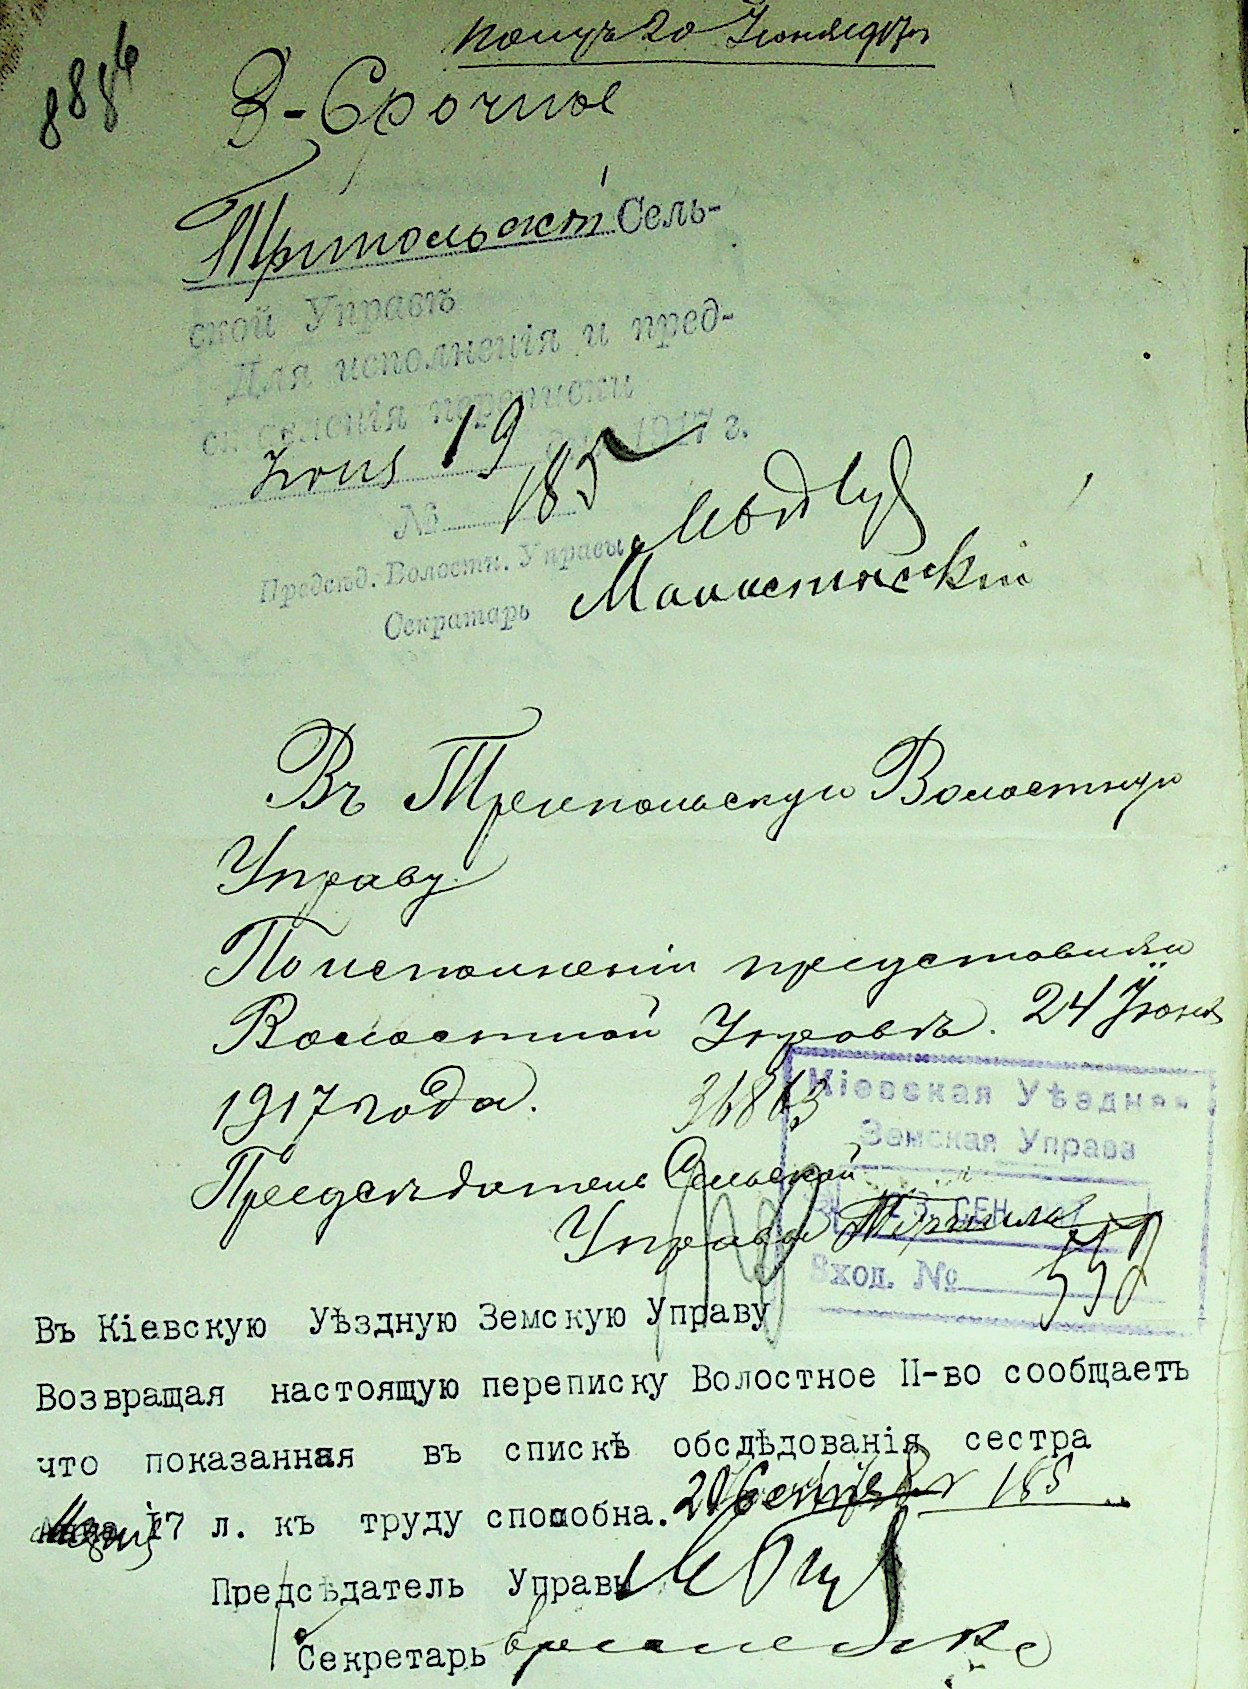 8886
получ 20 Июня 917 г
3-Срочное
Трипольской Сель-
ской Управѣ
Для исполненія и пред-
ставленія переписки
Іюня 19 дня 1917 г.
№ 185
Предсѣд. Волостн. Управы
Секретарь
Въ Трипольскую Волостную
Управу
По исполненіи представляю
Волостной Управѣ. 24 Іюня
1917 года.
36863
Предсѣдатель Сельской
Управы
Кіевская Уѣздная
Земская Управа
СЕН
Вход. № 558
Въ Кіевскую Уѣздную Земскую Управу
Возвращая настоящую переписку Волостное П-во сообщаетъ
что показанная въ спискѣ обслѣдованія сестра
17 л. къ труду способна. 20 Сентября 185
Предсѣдатель Управы
Секретарь